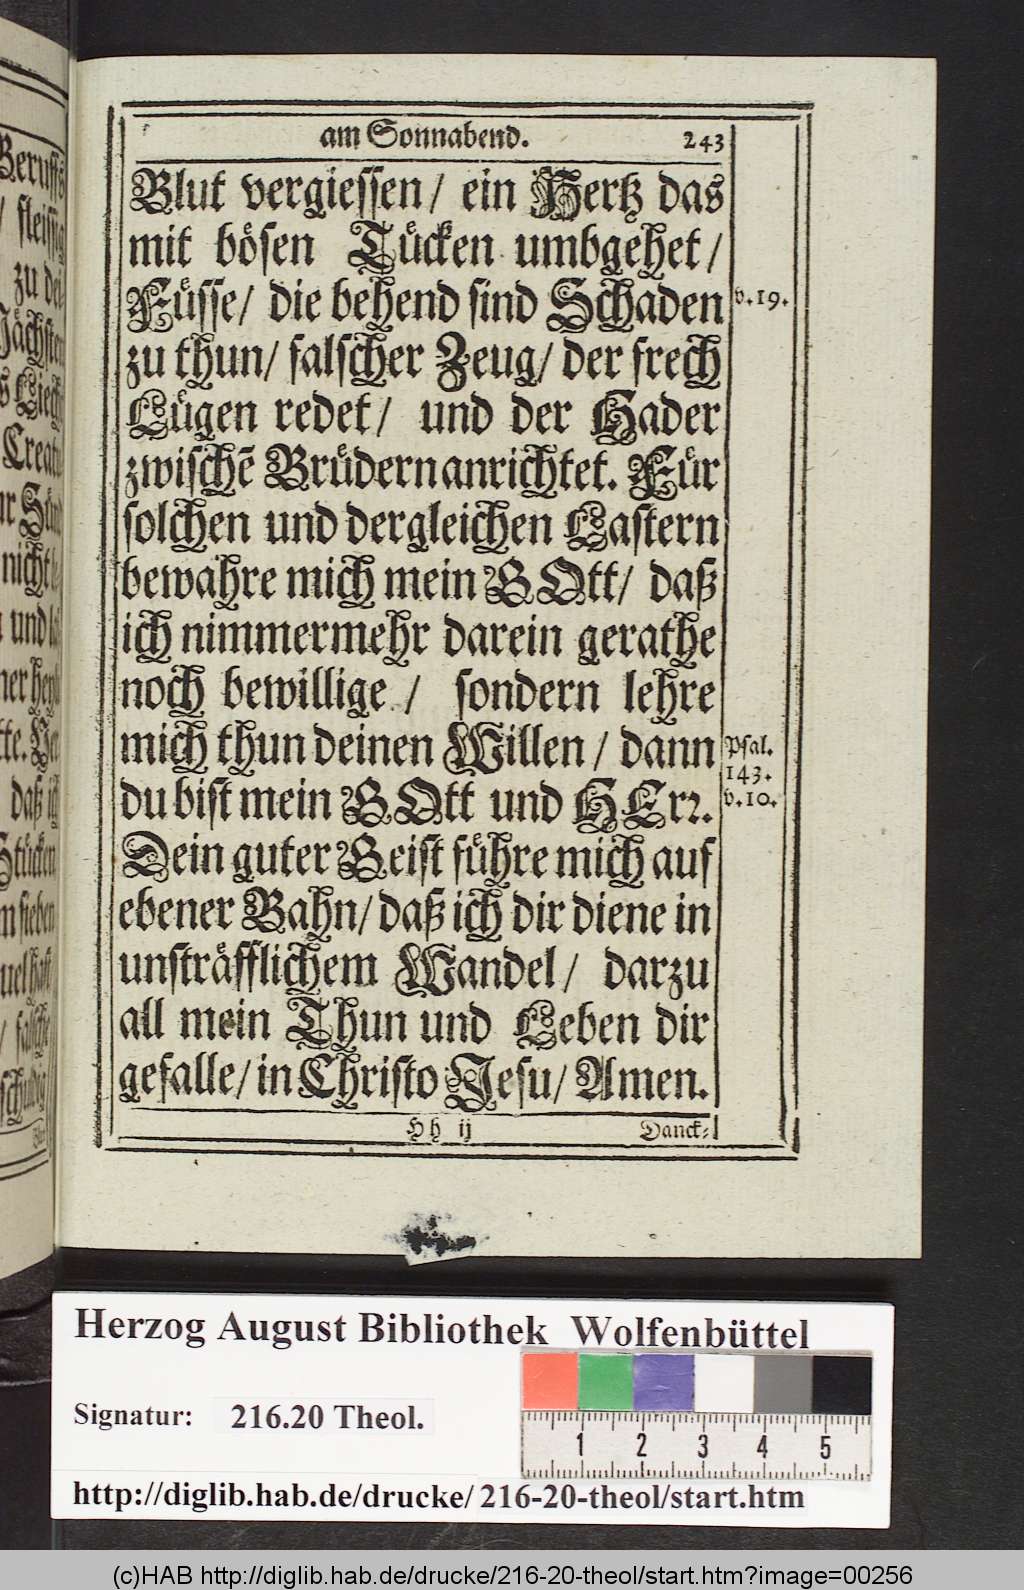 am Sonnabend. 243
Blut vergiessen/ ein Hertz das
mit bösen Tücken umbgehet/
Füsse/ die behend sind Schaden
v. 19.
zu thun/ falscher Zeug/ der frech
Lügen redet/ und der Hader
zwischē Brüdern anrichtet. Für
solchen und dergleichen Lastern
bewahre mich mein GOtt/ daß
ich nimmermehr darein gerathe
noch bewillige / sondern lehre
mich thun deinen Willen / dann
Psal.
143.
v. 10.
du bist mein GOtt und HErr.
Dein guter Geist führe mich auf
ebener Bahn/ daß ich dir diene in
unsträfflichem Wandel/ darzu
all mein Thun und Leben dir
gefalle/ in Christo Jesu/ Amen.
Hh ij Danck-
Herzog August Bibliothek Wolfenbüttel
Signatur: 216.20 Theol.
1 2 3 4 5
http://diglib.hab.de/drucke/216-20-theol/start.htm
(c)HAB http://diglib.hab.de/drucke/216-20-theol/start.htm?image=00256